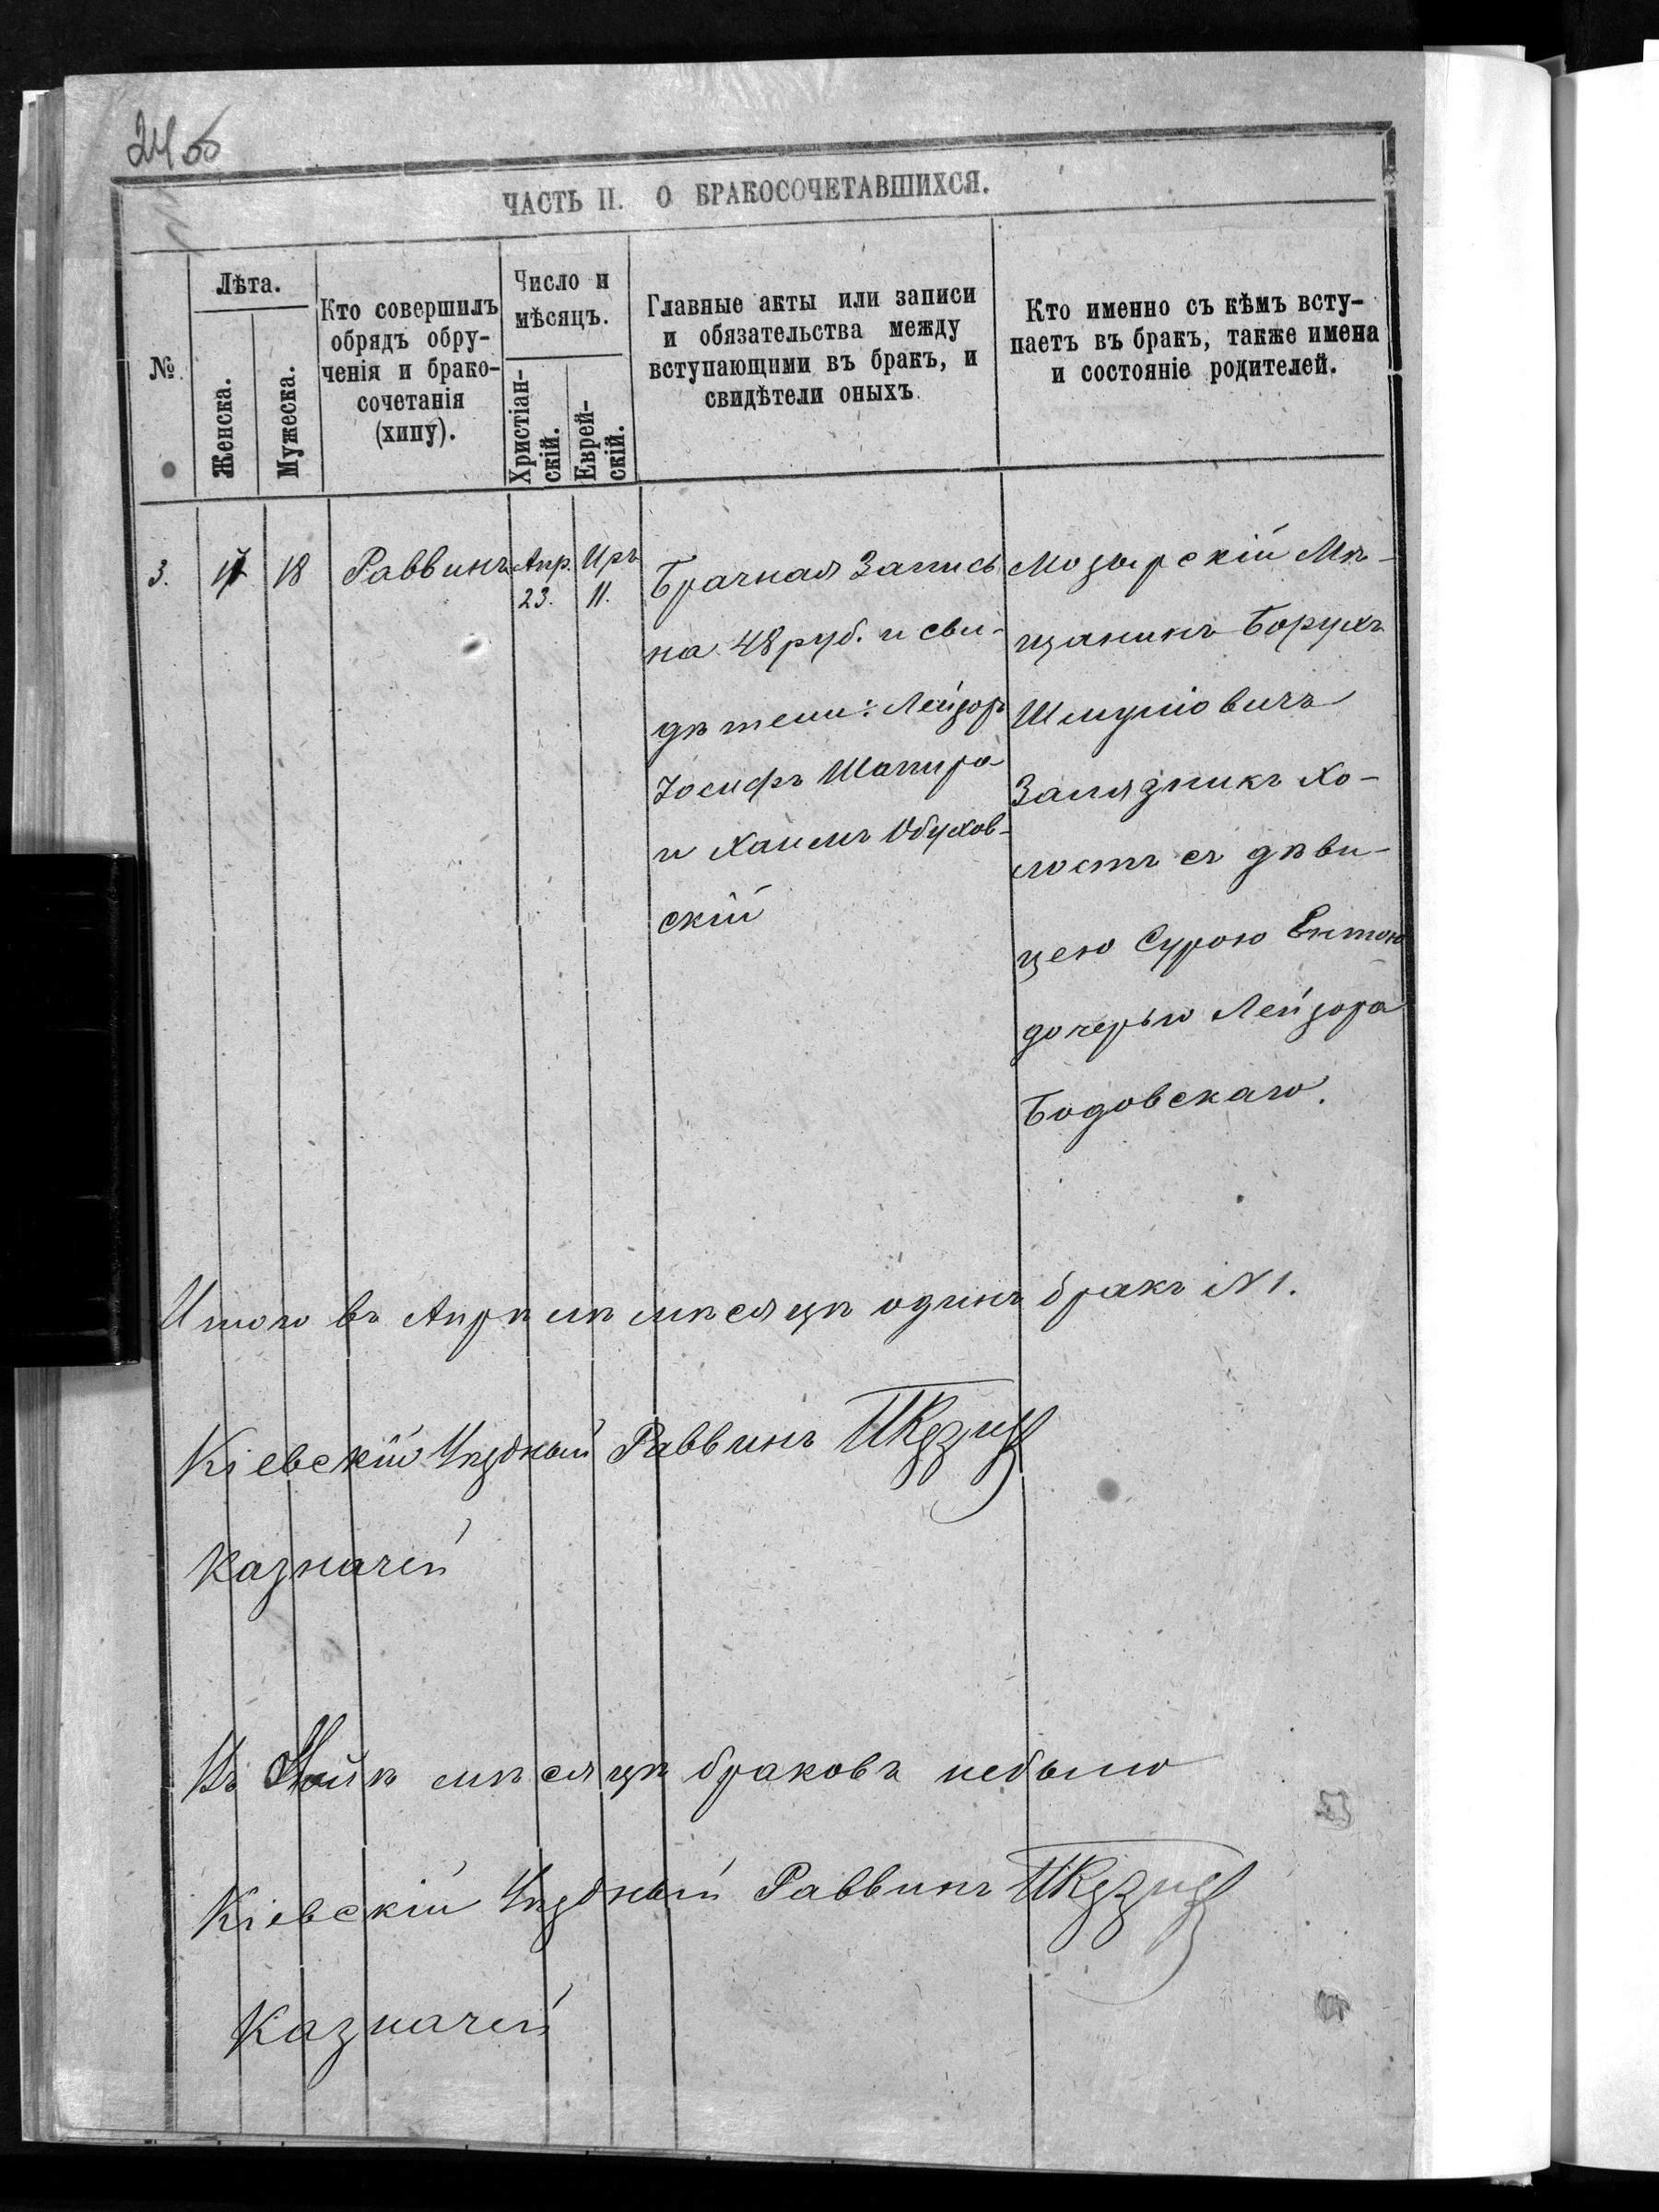 24об
ЧАСТЬ II. О БРАКОСОЧЕТАВШИХСЯ.
№
Лѣта.
Женска.
Мужеска.
Кто совершилъ
обрядъ обру-
ченія и брако-
сочетанія
(хипу).
Число и
мѣсяцъ.
Христіан-
скій.
Еврей-
скій.
Главные акты или записи
и обязательства между
вступающими въ бракъ, и
свидѣтели оныхъ.
Кто именно съ кѣмъ всту-
паетъ въ бракъ, также имена
и состояніе родителей.
3.
17
18
Раввинъ
Апр.
23.
Иръ
11.
Брачная Запись
на 48 руб. и сви-
дѣтели: Лейзоръ
Іосифъ Шапиро
и Хаимъ Обухов-
скій
Мозырскій Мѣ-
щанинъ Борухъ
Шмуліовичъ
Залязникъ хо-
лостъ съ дѣви-
цею Сурою Ентою
дочерью Лейзора
Бодовскаго.
Итого въ Апрѣлѣ мѣсяцѣ одинъ бракъ N 1.
Кіевскій Уѣздный Раввинъ
Казначей
Въ Маѣ мѣсяцѣ браковъ небыло
Кіевскій Уѣздный Раввинъ
Казначей